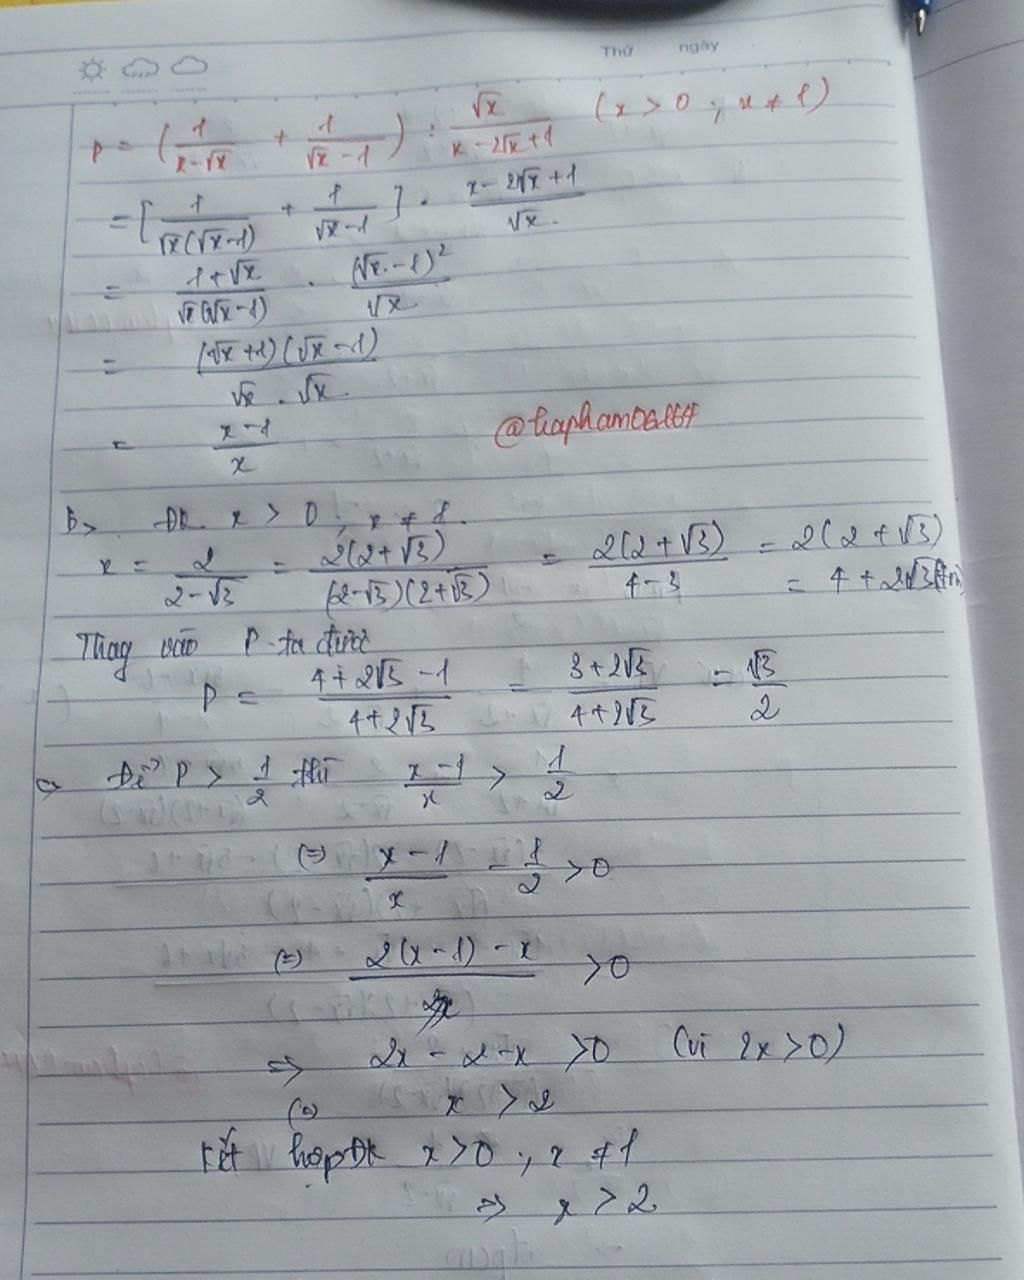 Thứ ngày
P = (1/(x-√x) + 1/(√x-1)) : √x/(x-2√x+1) (x > 0 ; x ≠ 1)
= [1/(√x(√x-1)) + 1/(√x-1)] . (x-2√x+1)/√x
= (1+√x)/(√x(√x-1)) . (√x-1)²/√x
= (√x+1)(√x-1)/(√x . √x)
= (x-1)/x
b> ĐK x > 0 ; x ≠ 1.
x = 2/(2-√3) = 2(2+√3)/((2-√3)(2+√3)) = 2(2+√3)/(4-3) = 2(2+√3)
= 4+2√3 (tm)
Thay vào P ta được
P = (4+2√3-1)/(4+2√3) = (3+2√3)/(4+2√3) = √3/2
c> Để P > 1/2 thì (x-1)/x > 1/2
(=) (x-1)/x - 1/2 > 0
(=) (2(x-1)-x)/2x > 0
=> 2x-2-x > 0 (vì 2x > 0)
(=) x > 2
Kết hợp ĐK x > 0 ; x ≠ 1
=> x > 2